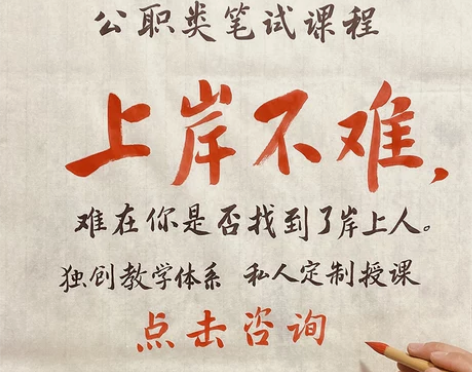 公职类笔试课程
上岸不难，
难在你是否找到了岸上人。
独创教学体系 私人定制授课
点击咨询